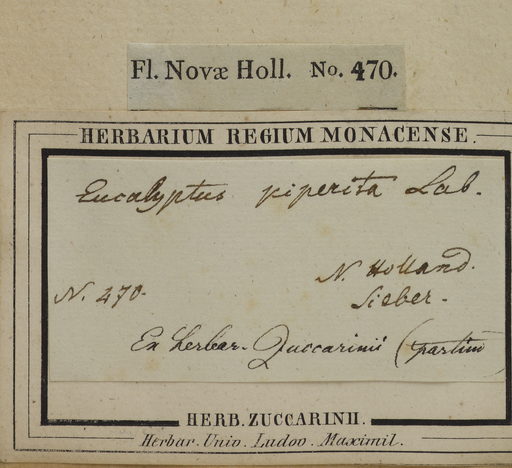 Fl. Novæ Holl. No. 470.
HERBARIUM REGIUM MONACENSE.
Eucalyptus piperita Lab.
N. Holland.
N. 470.
Sieber.
Ex herbar. Zuccarinii (partim)
HERB. ZUCCARINII.
Herbar. Univ. Ludov. Maximil.